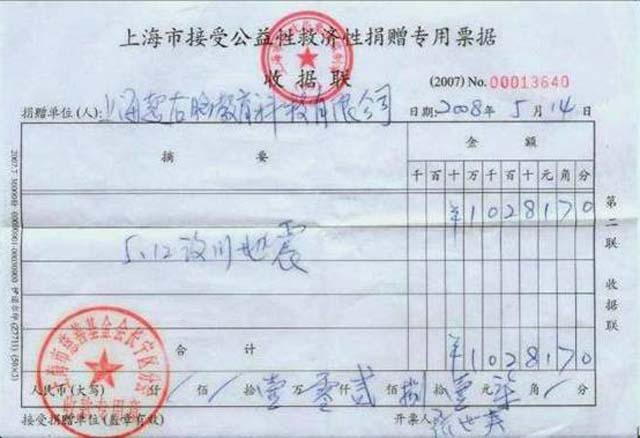 上海市接受公益性救济性捐赠专用票据
收据联
(2007) No. 00013640
捐赠单位(人): 上海慧右脑教育科技有限公司
日期: 2008年 5月 14日
摘要
金额
千百十万千百十元角分
¥1028170
5.12汶川地震
第二联 收据联
合计
¥1028170
人民币(大写) 仟 佰 拾壹万零仟贰佰捌拾壹元柒角 分
接受捐赠单位(盖章有效)
开票人:
上海市慈善基金会长宁区分会